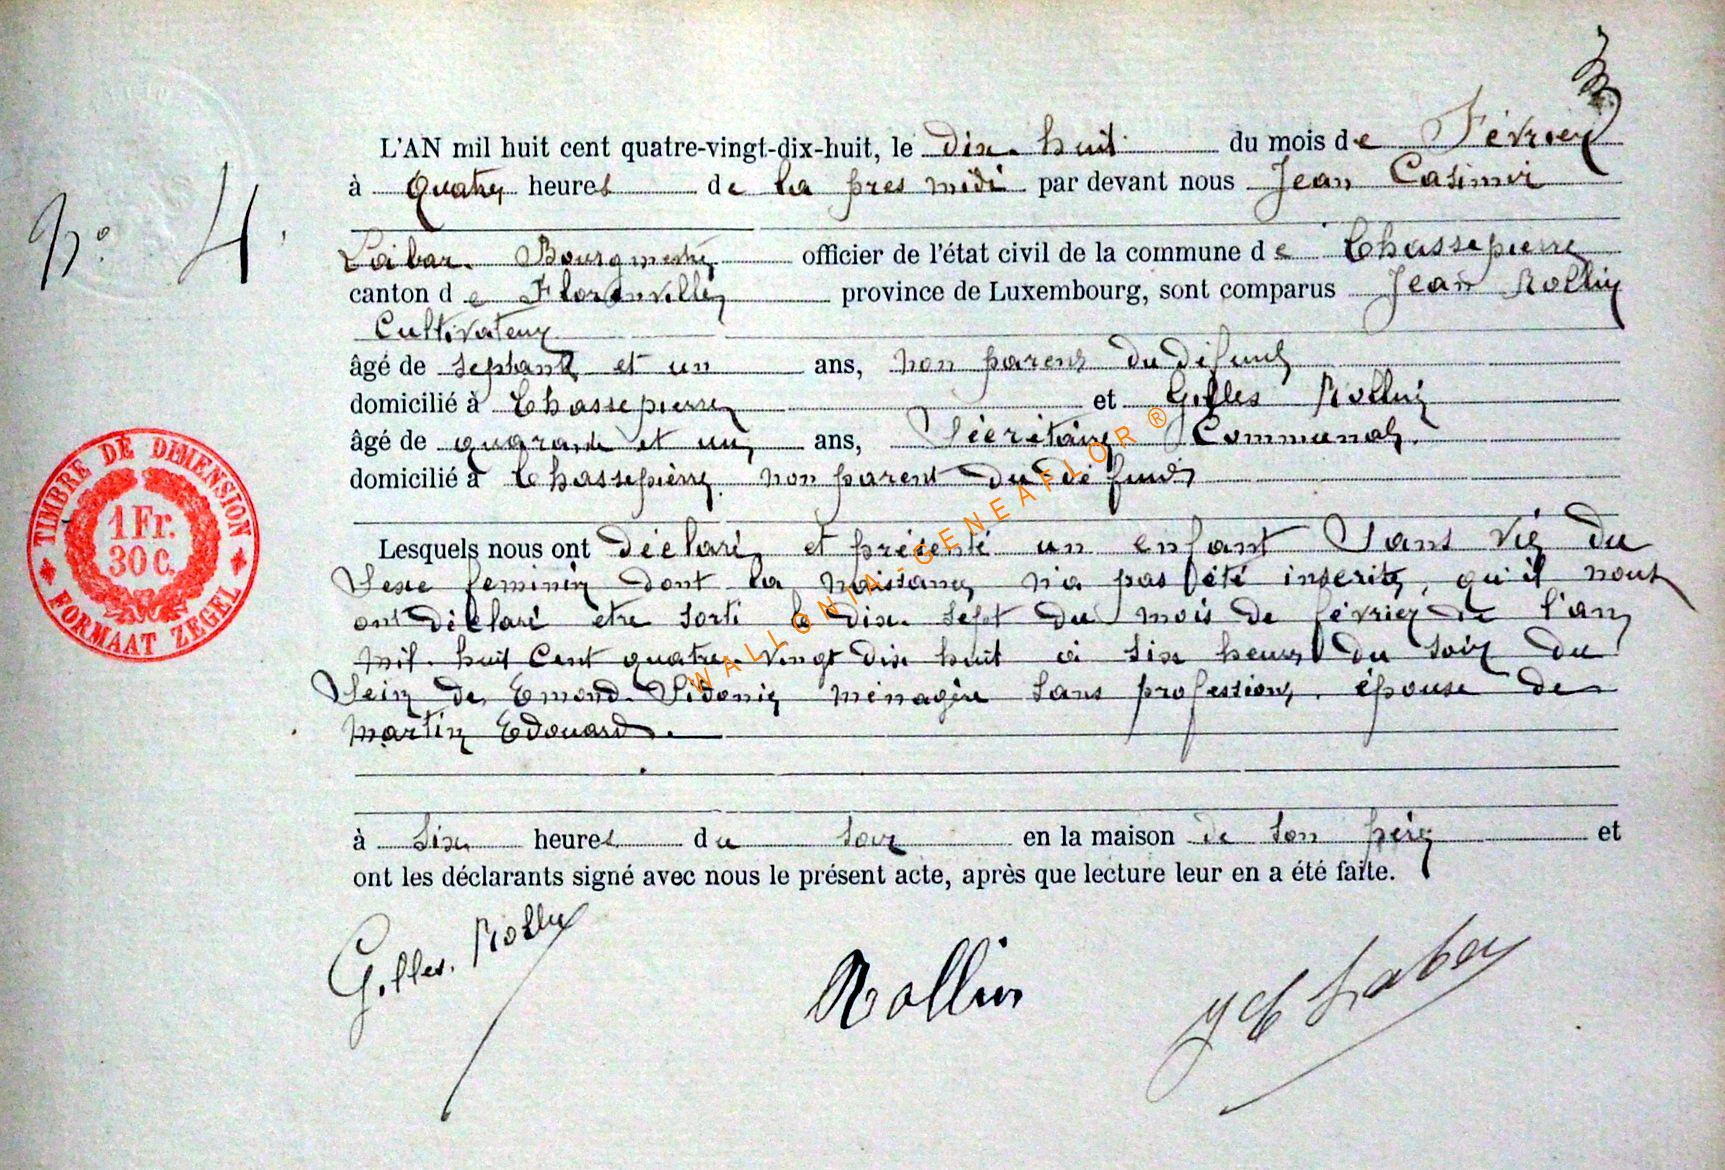 N° 4.
L'AN mil huit cent quatre-vingt-dix-huit, le dix huit du mois de Février
à quatre heures de la pres midi par devant nous Jean Casimir
Labar Bourgmestre officier de l'état civil de la commune de Chassepierre
canton de Florenville province de Luxembourg, sont comparus Jean Rollin
Cultivateur
âgé de septante et un ans, non parent du défunt
domicilié à Chassepierre et Gilles Rollin
âgé de quarante et un ans, Sécrétaire Communal.
domicilié à Chassepierre. non parent du défunt
Lesquels nous ont déclaré et présenté un enfant Sans vie du
Sexe feminin dont la naissance n'a pas été inscrite, qu'il nous
ont déclaré être sorti le dix sept du mois de février de l'an
mil huit cent quatre vingt dix huit à six heures du soir du
Sein de Emond Sidonie ménagère sans profession, épouse de
Martin Edouard.
à six heures du soir en la maison de son père et
ont les déclarants signé avec nous le présent acte, après que lecture leur en a été faite.
Gilles. Rollin
Rollin
JC Labar
TIMBRE DE DIMENSION
1 Fr.
30 c.
FORMAAT ZEGEL
WALLONIA-GENEAFLOR ®